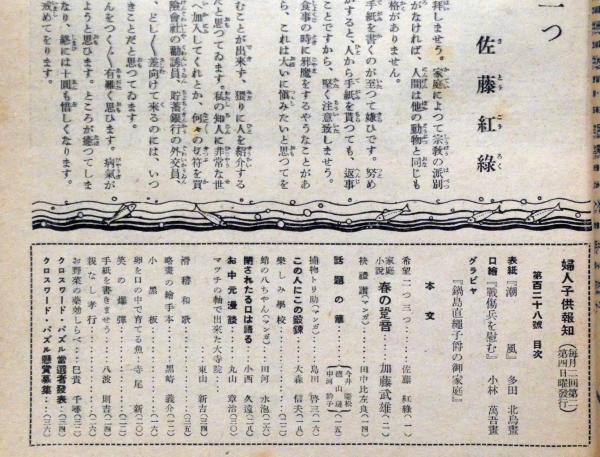 一つ
佐藤紅綠
さとうこうろく
拜しませう。家庭によつて宗敎の派別
がなければ、人間は他の動物と同じも
格がありません。
手紙を書くのが至つて嫌ひです。努め
がすると、人から手紙を貰つても、返事
ことですから、堅く注意致しませう。
食事の時に邪魔をするやうなことがあ
ら、これは大いに愼みたいと思つてを
むことが出來ず、猥りに人を紹介する
だと思つてゐます。私の知人に非常な世
へ加入してくれとか、何々の切符を買
險會社の勸誘員、貯蓄銀行の外交員
、どしどし差向けて來るのには、いつ
きことだと思つてゐます。
んをつくづく有難く思ひます。病氣が
ようと思ひます。ところが癒つてしま
なり、終には十圓も惜しくなります。
戒めてをります。
婦人子供報知
(每月二回第二
第四日曜發行)
第百二十八號 目次
表紙『潮風』 多田北烏畫
口繪『戰傷兵を慰む』 小林萬吾畫
グラビヤ
『鍋島直繩子爵の御家庭』
本文
希望二つ三つ 佐藤紅綠(一)
家庭小說 春の跫音 加藤武雄(二)
袂禮讃(マンガ) 田中比左良(四)
話題の華 德山璉(一五)
捕物トリ助(マンガ) 島田啓三(一六)
この人にこの鍛鍊 大森信夫(一八)
樂しみ學校
蛸の八ちやん(マンガ) 田河水泡(二六)
閉される口は語る 小西久遠(二八)
お中元漫談 丸山章治(三〇)
マヅチの軸で出來た大寺院
滑稽和歌 東山新吉(二四)
略畫の繪手本 黑崎義介(一二)
小黑板
卵を口の中で育てる魚 寺尾新
笑の爆彈
手紙を書きませう 八波則吉
親なし孝行
お野菜の藥効しらべ 巳貴千尋(三二)
クロスワード・パズル當選者發表(三四)
クロスワード・パズル懸賞募集(三六)